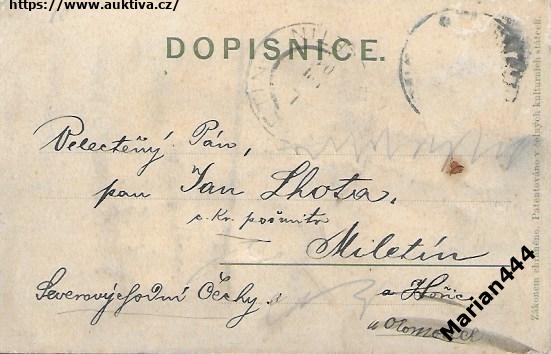 https://www.auktiva.cz/
DOPISNICE.
Velectěný Pán,
pan Jan Lhota,
c. kr. poštmistr
Miletín
Severovýchodní Čechy
a Hořic
u Olomouce
Marian444.
Zákonem chráněno. Patentováno v jiných kulturních státech.